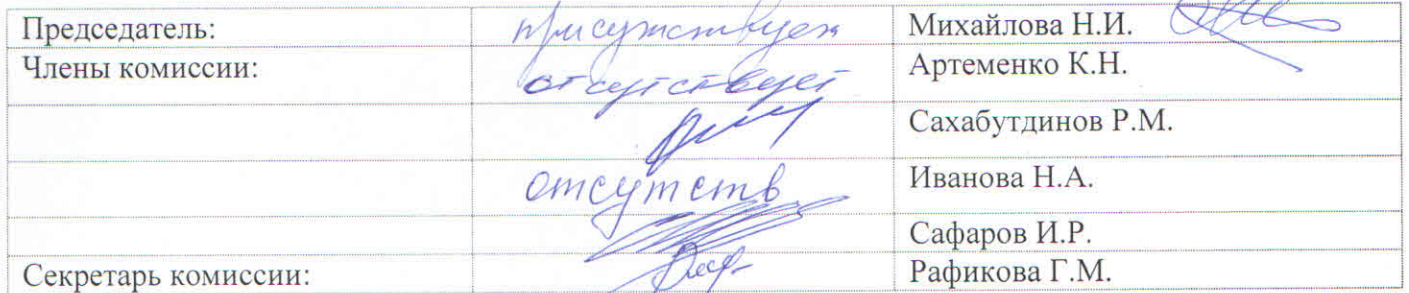 Председатель: присутствует Михайлова Н.И.
Члены комиссии: отсутствует Артеменко К.Н.
Сахабутдинов Р.М.
отсутств Иванова Н.А.
Сафаров И.Р.
Секретарь комиссии: Рафикова Г.М.